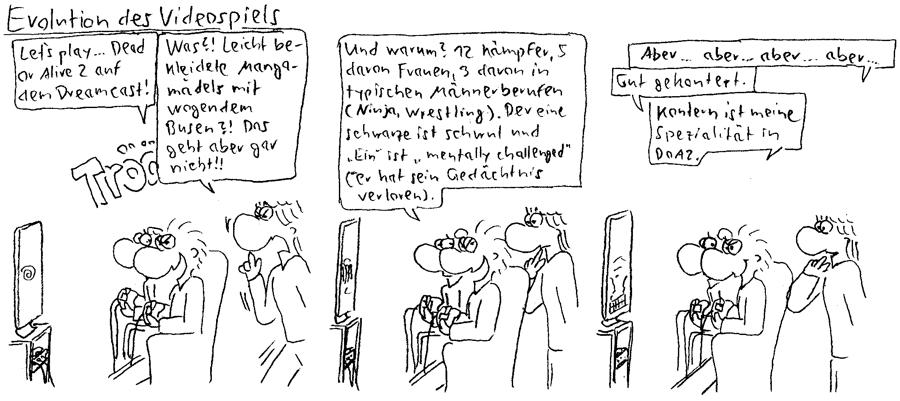 Evolution des Videospiels
Let's play... Dead
or Alive 2 auf
dem Dreamcast!
Was?! Leicht be-
kleidete Manga-
mädels mit
wogendem
Busen?! Das
geht aber gar
nicht!!
Und warum? 12 Kämpfer, 5
davon Frauen, 3 davon in
typischen Männerberufen
(Ninja, Wrestling). Der eine
schwarze ist schwul und
„Ein" ist „mentally challenged"
(er hat sein Gedächtnis
verloren).
Aber... aber... aber... aber...
Gut gekontert.
Kontern ist meine
Spezialität in
DoA2.